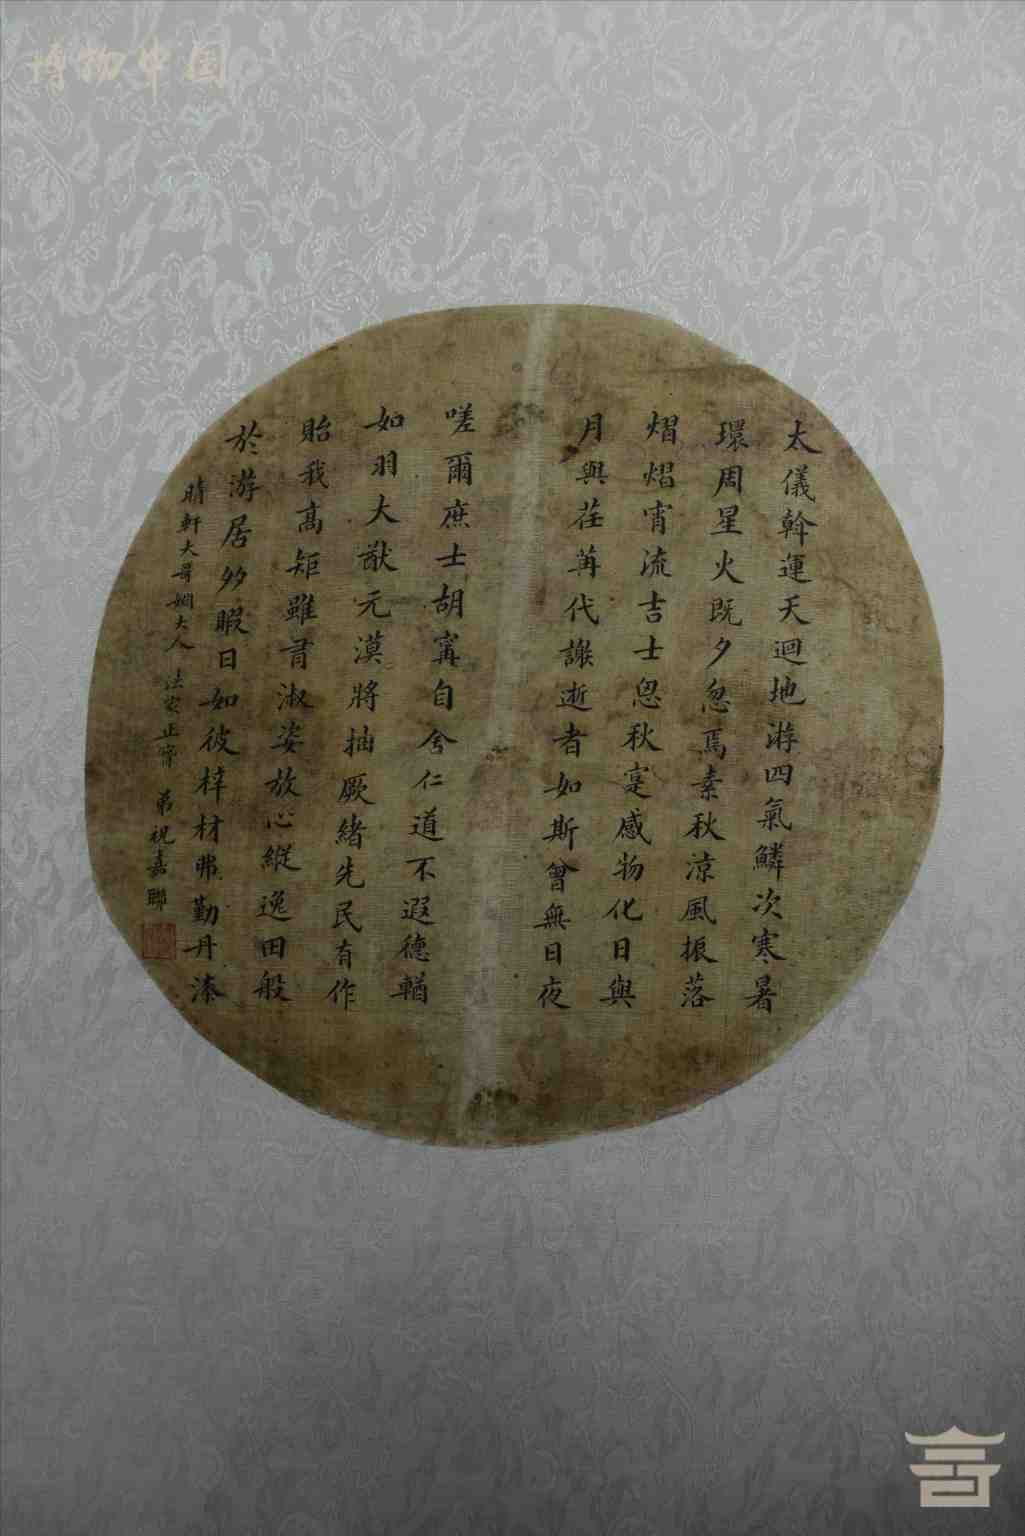 博物中国
太儀斡運天迴地游四氣鱗次寒暑
環周星火既夕忽焉素秋涼風振落
熠熠宵流吉士思秋寔感物化日與
月與荏苒代謝逝者如斯曾無日夜
嗟爾庶士胡寗自舍仁道不遐德輶
如羽大猷元漠將抽厥緒先民有作
貽我高矩雖有淑姿放心縱逸田般
於游居多暇日如彼梓材弗勤丹漆
晴軒大哥姻大人 法家正 弟祝嘉聯